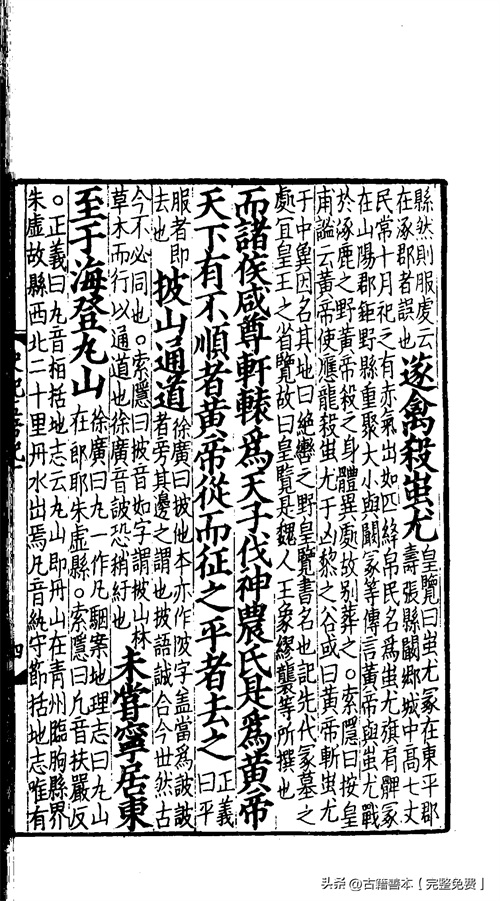 縣然則服虔云
在涿郡者誤也
遂禽殺蚩尤
皇覽曰蚩尤冢在東平郡
壽張縣闞鄉城中高七丈
民常十月祀之有赤氣出如匹絳帛民名為蚩尤旗肩髀冢
在山陽郡鉅野縣重聚大小與闞冢等傳言黃帝與蚩尤戰
於涿鹿之野黃帝殺之身體異處故别葬之○索隱曰按皇
甫謐云黃帝使應龍殺蚩尤于凶黎之谷或曰黃帝斬蚩尤
于中冀因名其地曰絶轡之野皇覽書名也記先代冢墓之
處宜皇王之省覽故曰皇覽是魏人王象繆襲等所撰也
而諸侯咸尊軒轅為天子代神農氏是為黃帝
天下有不順者黃帝從而征之平者去之
正義
曰平
服者即
去也
披山通道
徐廣曰披他本亦作陂字盖當為詖詖
者旁其邊之謂也披語誠合今世然古
今不必同也○索隱曰披音如字謂披山林
草木而行以通道也徐廣音詖恐稍紆也
未甞寧居東
至于海登丸山
徐廣曰丸一作凡駰案地理志曰丸山
在郎耶朱虛縣○索隱曰凡音扶嚴反
○正義曰丸音桓括地志云丸山即丹山在青州臨朐縣界
朱虛故縣西北二十里丹水出焉凡音紈守節括地志唯有
四
头条@古籍善本【完整免费】